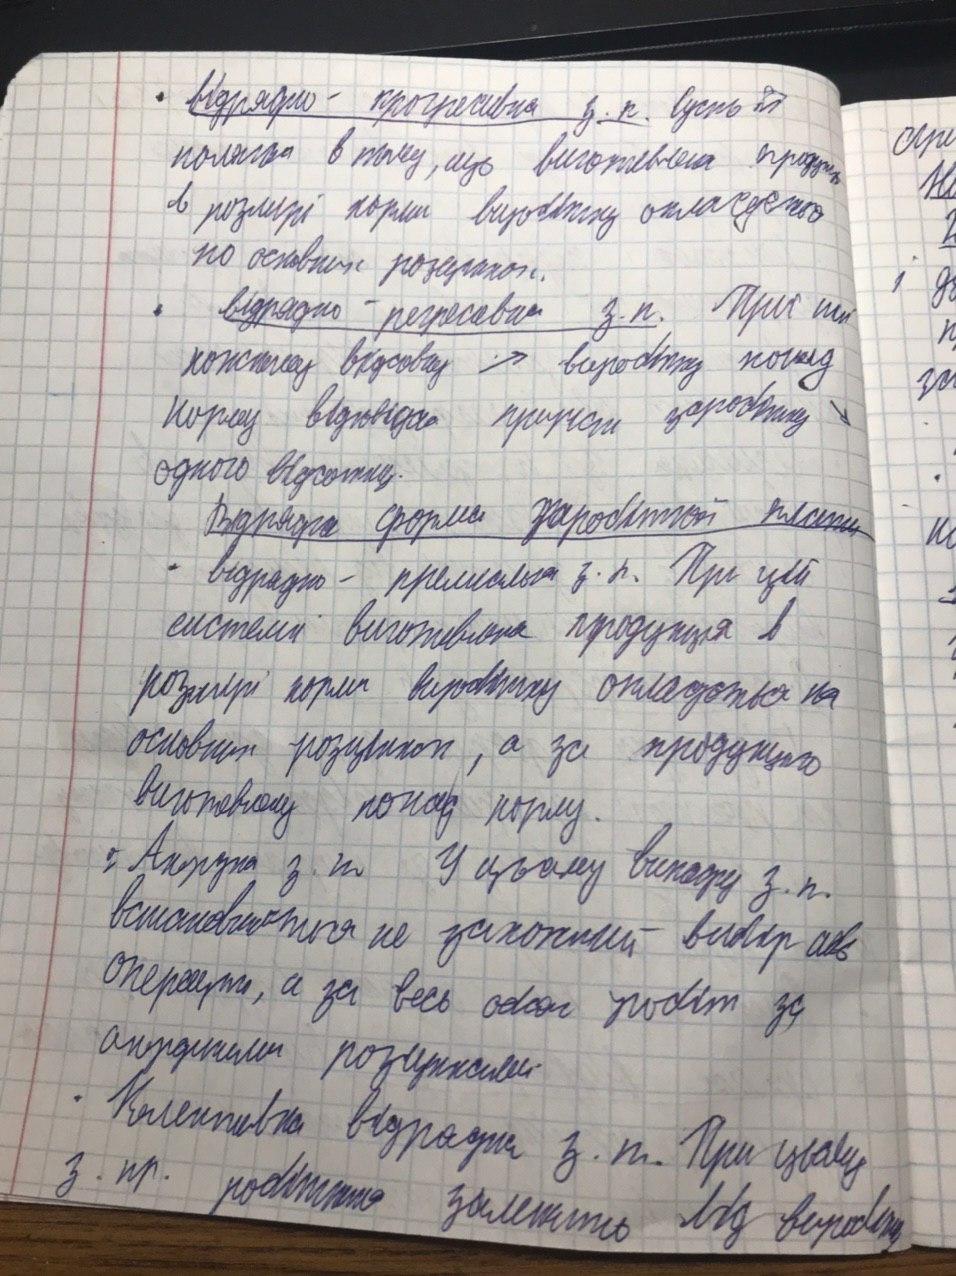 · відрядно - прогресивна з.п. Суть її
полягає в тому, що виготовлена продукц
в розмірі норми виробітку оплачується
по основних розцінках.
· відрядно - регресивна з.п. При ній
кожному відсотку ↗ виробітку понад
норму відповідає приріст заробітку ↘
одного відсотку.
Відрядна форма заробітної плати
· відрядно - преміальна з.п. При цій
системі виготовлена продукція в
розмірі норми виробітку оплачується на
основних розцінках, а за продукцію
виготовлену понад норму.
· Акордна з.п. У цьому випадку з.п.
встановлюється не за кожний вибір або
операцію, а за весь обсяг робіт за
акордними розцінками
· Колективна відрядна з.п. При цьому
з.пл. робітника залежить від виробітку